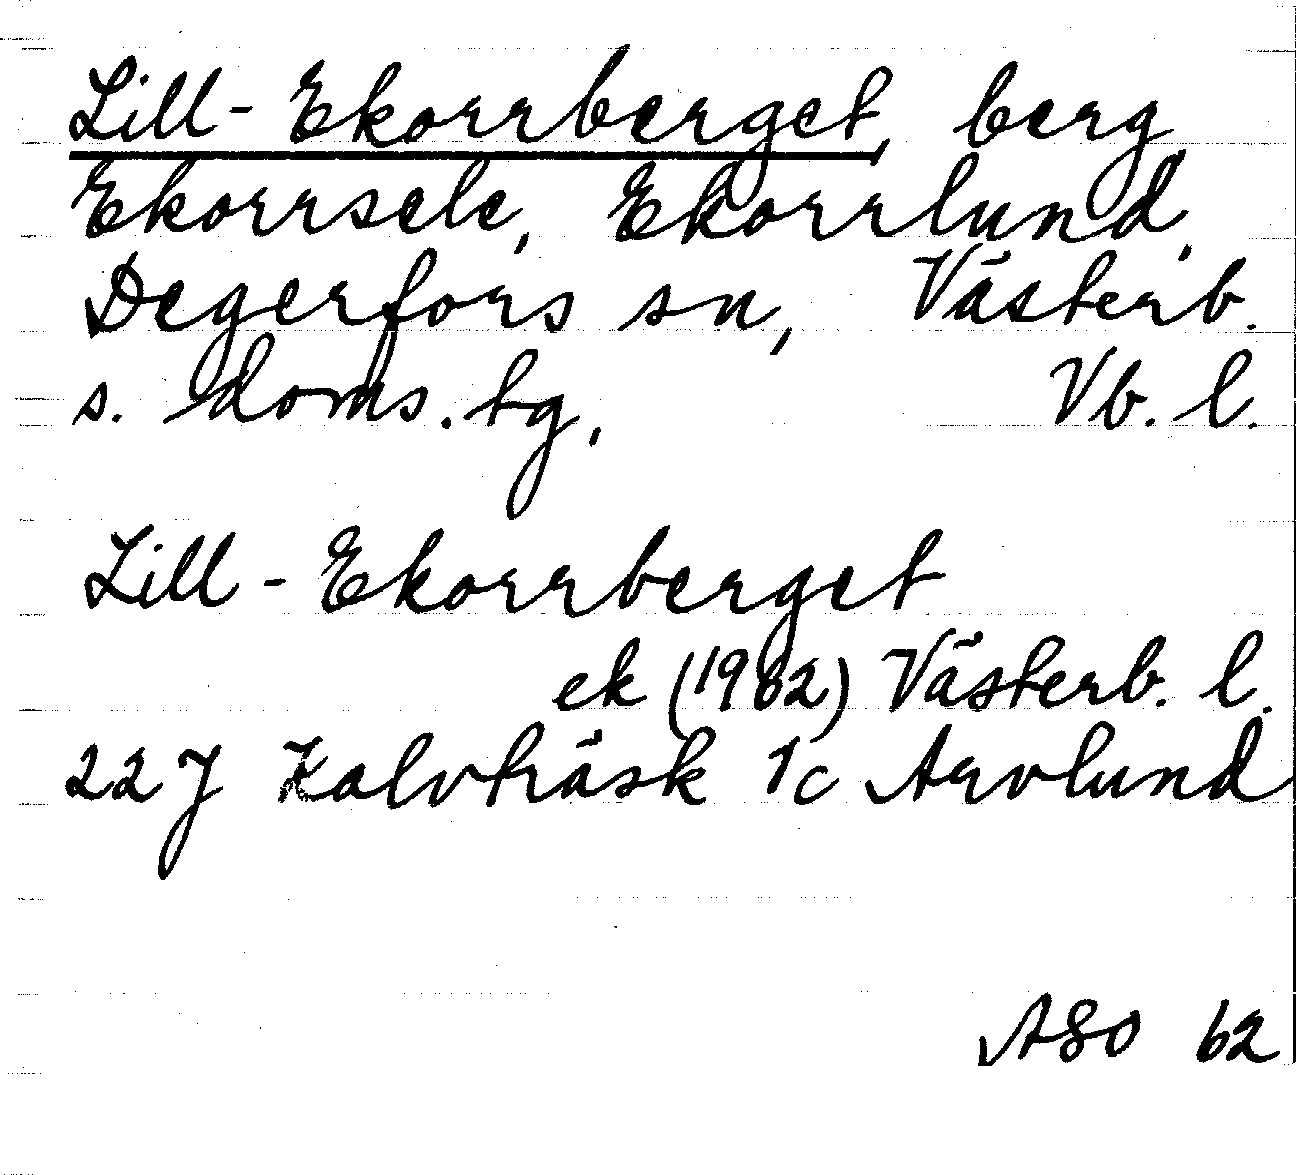 Lill-Ekorrberget, berg
Ekorrsele, Ekorrlund,
Degerfors sn, Västerb.
s. doms. tg, Vb. l.
Lill-Ekorrberget
ek (1962) Västerb. l.
22 J Kalvträsk 1c Arvlund
ASO 62